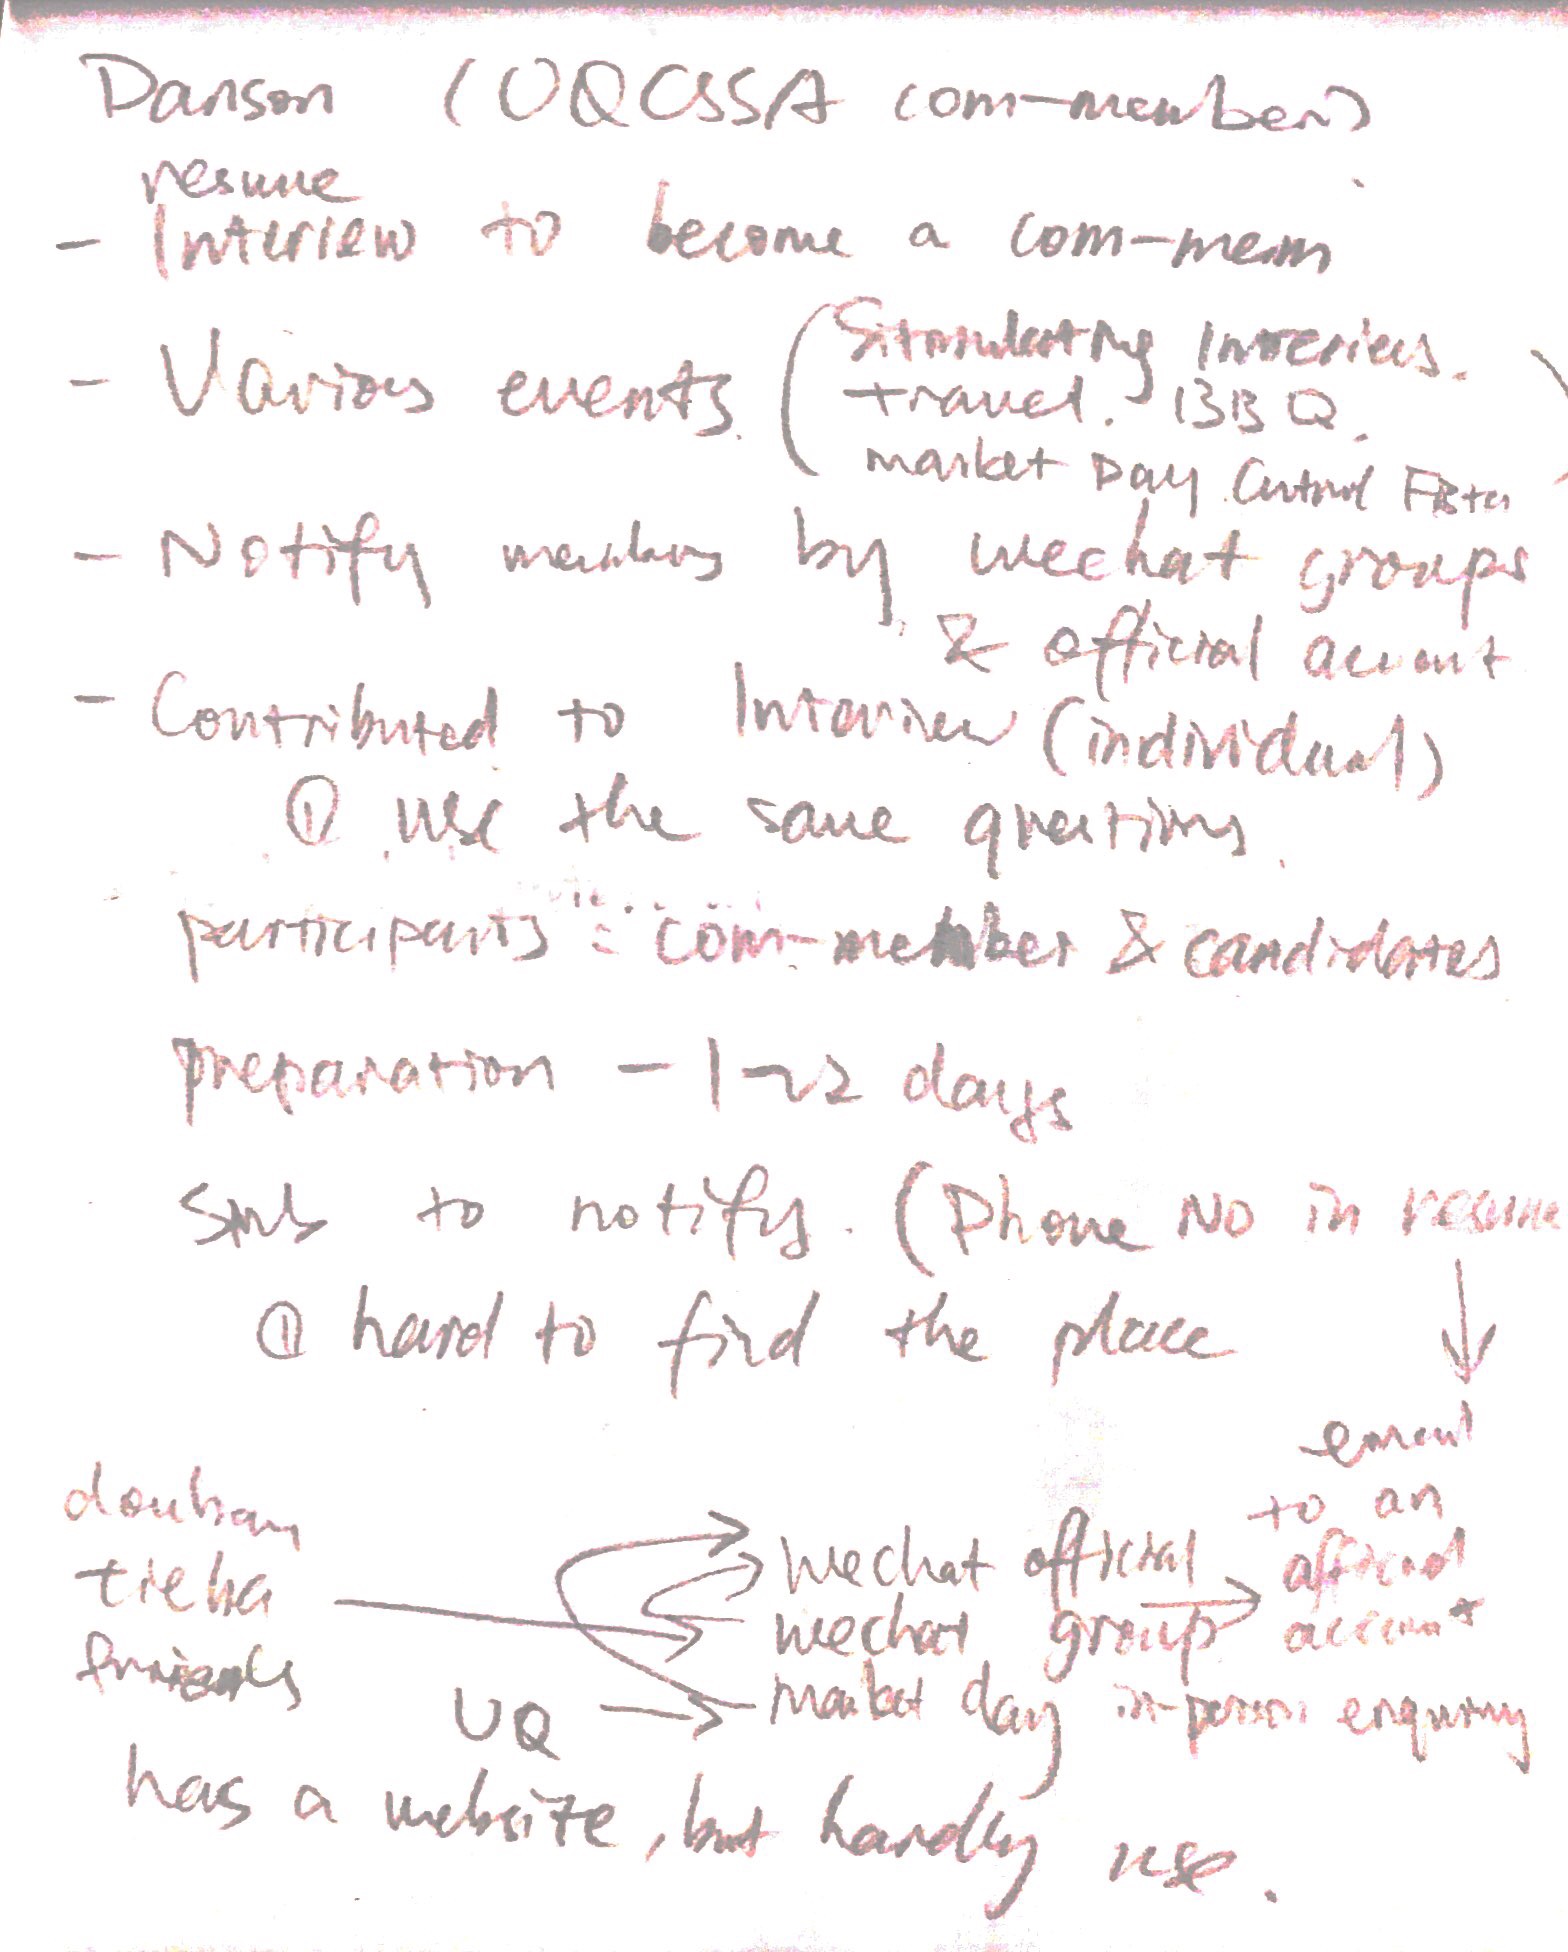 Danson (UQCSSA com-member)
resume
- Interview to become a com-mem
- Various events. (Stimulating Interviews.
travel. BBQ.
market Day.
- Notify members by wechat groups
& official account
- Contributed to Interview (individual)
① use the same questions.
participants: com-member & candidates
preparation - 1~2 days
SMS to notify. (Phone NO in resume
① hard to find the place
email
to an
official
account
douban
tieba
friends
wechat official
wechat group
UQ
market day in-person enquiry
has a website, but hardly use.